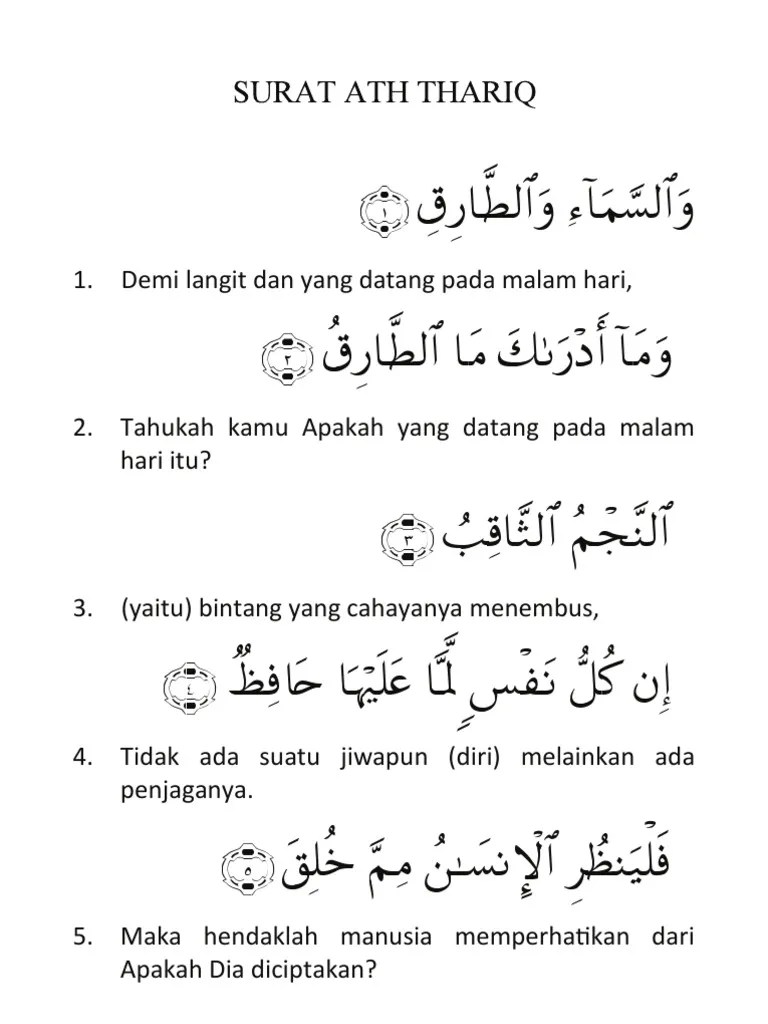 SURAT ATH THARIQ
وَٱلسَّمَآءِ وَٱلطَّارِقِ ١
1. Demi langit dan yang datang pada malam hari,
وَمَآ أَدْرَىٰكَ مَا ٱلطَّارِقُ ٢
2. Tahukah kamu Apakah yang datang pada malam
hari itu?
ٱلنَّجْمُ ٱلثَّاقِبُ ٣
3. (yaitu) bintang yang cahayanya menembus,
إِن كُلُّ نَفْسٍ لَّمَّا عَلَيْهَا حَافِظٌ ٤
4. Tidak ada suatu jiwapun (diri) melainkan ada
penjaganya.
فَلْيَنظُرِ ٱلْإِنسَـٰنُ مِمَّ خُلِقَ ٥
5. Maka hendaklah manusia memperhatikan dari
Apakah Dia diciptakan?